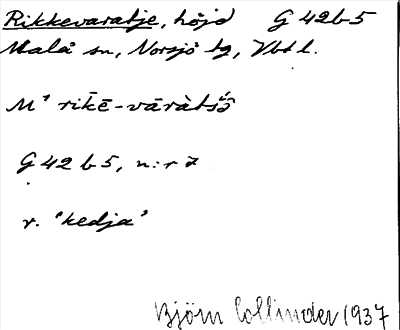 Rikkevaratje, höjd G 42b5
Malå sn, Norsjö tg, Vbtl.
M¹ rik̄ē-vāràtšō̂
G 42 b 5, n:r 7
r. 'kedja'
Björn Collinder 1937